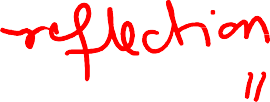 reflection
"